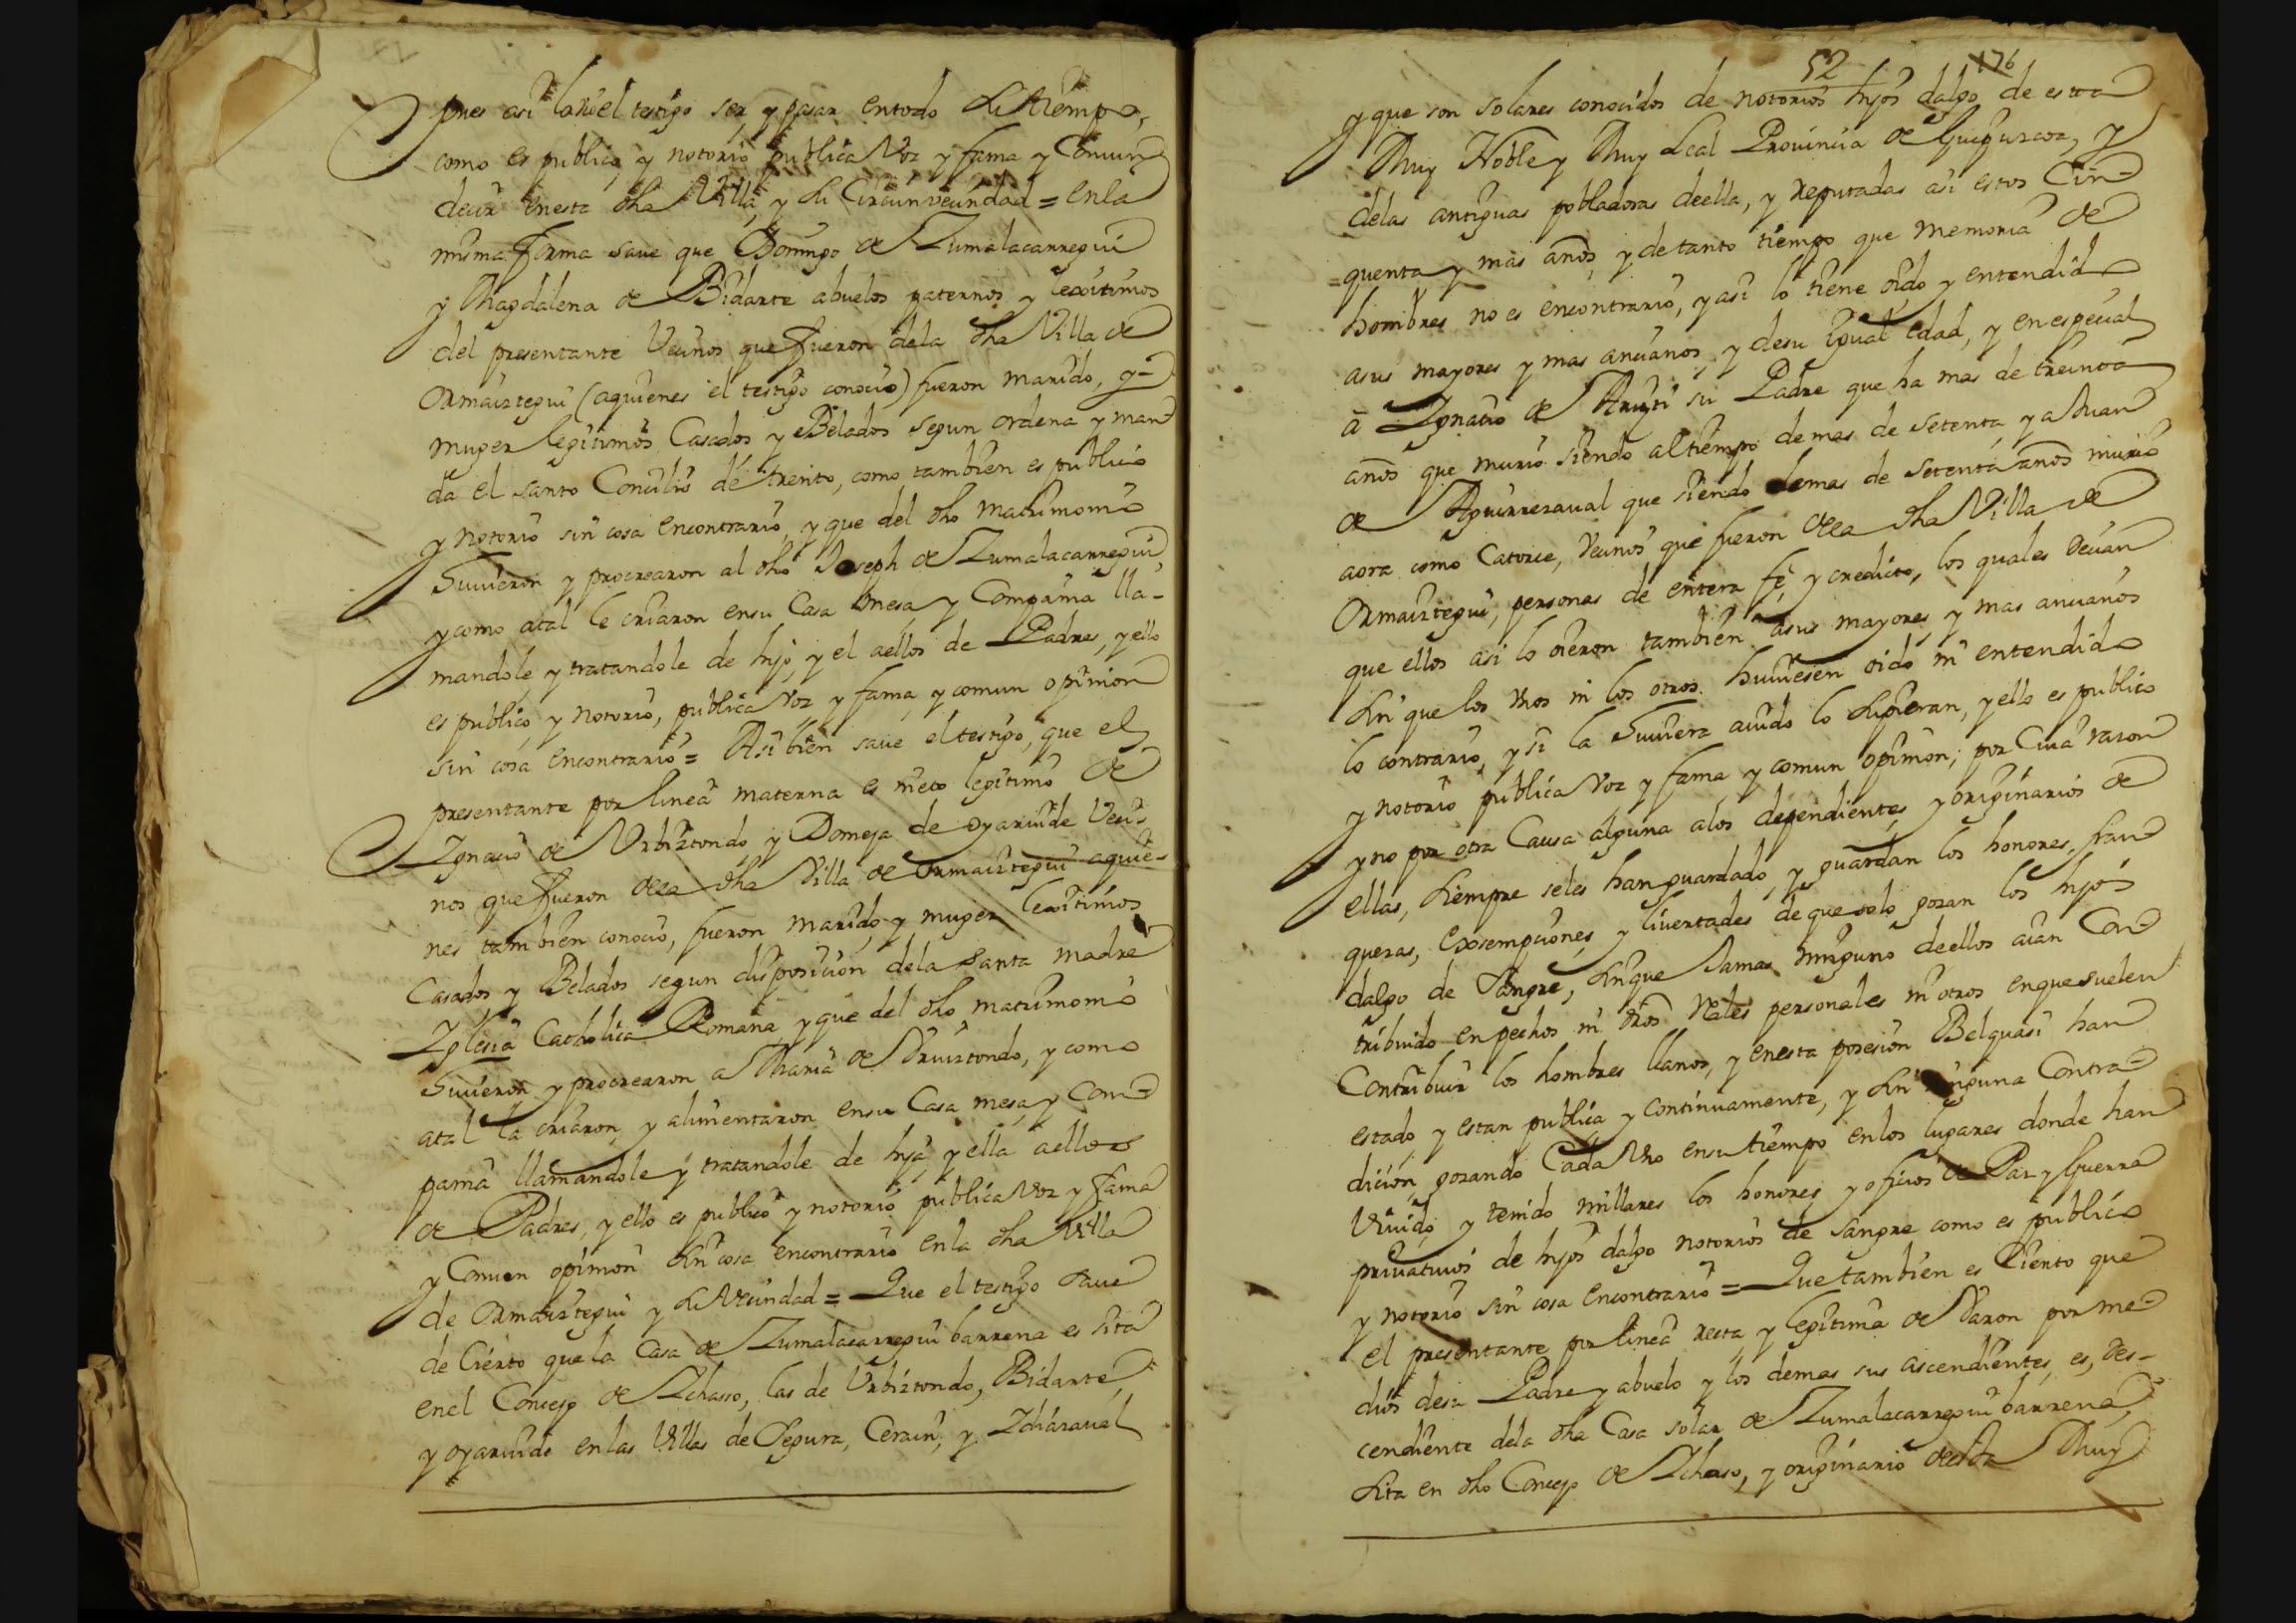 pues asi lo vio el testigo ser, y pasar entodo su tiempo,
como es publico, y notorio publica voz y fama y Comun
decir enesta dha Villa, y su Circunvecindad = Enla
misma forma save que Domingo de Zumalacarregui
y Magdalena de Bidarte abuelos paternos y lexitimos
del presentante Vecinos que fueron dela dha Villa de
Ormaiztegui (aquienes el testigo conocio) fueron marido, y=
muger legitimos Casados y Belados segun ordena y man=
da el santo Concilio de trento, como tambien es publico
y notorio sin cosa encontrario, y que del dho matrimonio
Tuvieron y procrearon al dho Joseph de Zumalacarregui,
y como atal le criaron ensu Casa mesa, y Compañia lla-
mandole, y tratandole de hijo, y el aellos de Padres, y ello
es publico, y notorio, publica voz y fama, y comun opinion
sin cosa encontrario = Asi bien save el testigo, que el
presentante por linea materna es nieto legitimo de
Ygnacio de Vrbiztondo y Domeja de oyarvide Veci-
nos que fueron dela dha Villa de Ormaiztegui aquie-
nes tambien conocio, fueron marido, y muger lexitimos
Casados y Belados segun disposicion dela santa madre
Yglesia Catholica Romana, y que del dho matrimonio
Tuvieron, y procrearon a Maria de Vruiztondo, y como
atal la criaron, y alimentaron ensu Casa mesa, y Com=
pañia llamandole y tratandole de hija, y ella aellos
de Padres, y ello es publico y notorio publica voz y fama
y Comun opinion sin cosa encontrario enla dha Villa
de Ormaiztegui y su Vecindad = Que el testigo save
de Cierto que la Casa de Zumalacarregui barrena es sita
enel Concejo de Ychasso, las de Urbiztondo, Bidarte,
y oyarvide enlas Villas de Segura, Cerain, y Ydiazaval
52 176
y que son solares conocidos de notorios hijos dalgo de esta
Muy Noble y Muy Leal Provincia de Guipuzcoa, y
delas antiguas pobladoras deella, y Reputadas asi estos Cin=
=quenta y mas años, y de tanto tiempo que memoria de
hombres no es encontrario, y asi lo tiene oido y entendido
asus mayores y mas ancianos, y desu igual edad, y en especial
a Ygnacio de Aruti su Padre que ha mas de treinta
años que murio siendo altiempo demas de setenta, y a Juan
de Aguirrezaval que siendo demas de setenta años murio
aora como Catorce, Vecinos que fueron dela dha Villa de
Ormaiztegui, personas de entera fe, y credicto, los quales decian
que ellos asi lo oieron tambien asus mayores y mas ancianos
sin que los vnos ni los otros huviesen oido ni entendido
lo contrario, y si la Tuviera avido lo supieran, y ello es publico
y notorio publica voz y fama y comun opinion; por Cuia razon
y no por otra Causa alguna alos dependientes, y originarios de
ellas, siempre seles han guardado, y guardan los honores, fran=
quezas, Exsempciones, y livertades de que solo gozan los hijos
dalgo de Sangre, sinque Jamas ninguno deellos aian Con=
tribuido en pechos ni dros Reales personales ni otros, enque suelen
Contribuir los hombres llanos, y enesta posesion Belquasi han
estado, y estan publica y continuamente, y sin ninguna Contra=
dicion, gozando Cada Vno ensu tiempo enlos lugares donde han
vivido, y tenido millares los honores, y oficios de Paz y Guerra
privativos de hijos dalgo notorios de sangre como es publico
y notorio sin cosa encontrario = Que tambien es Cierto que
el presentante por linea recta, y legitima de Varon por me=
dios desu Padre y abuelo y los demas sus ascendientes, es, des-
cendiente dela dha Casa solar de Zumalacarregui barrena,
sita en dho Concejo de Ychaso, y originario deesta Muy